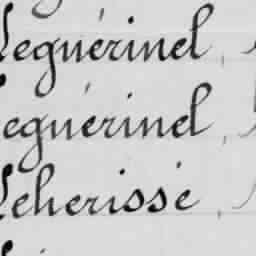 Leguérinel,
Leguérinel,
Leherissé,